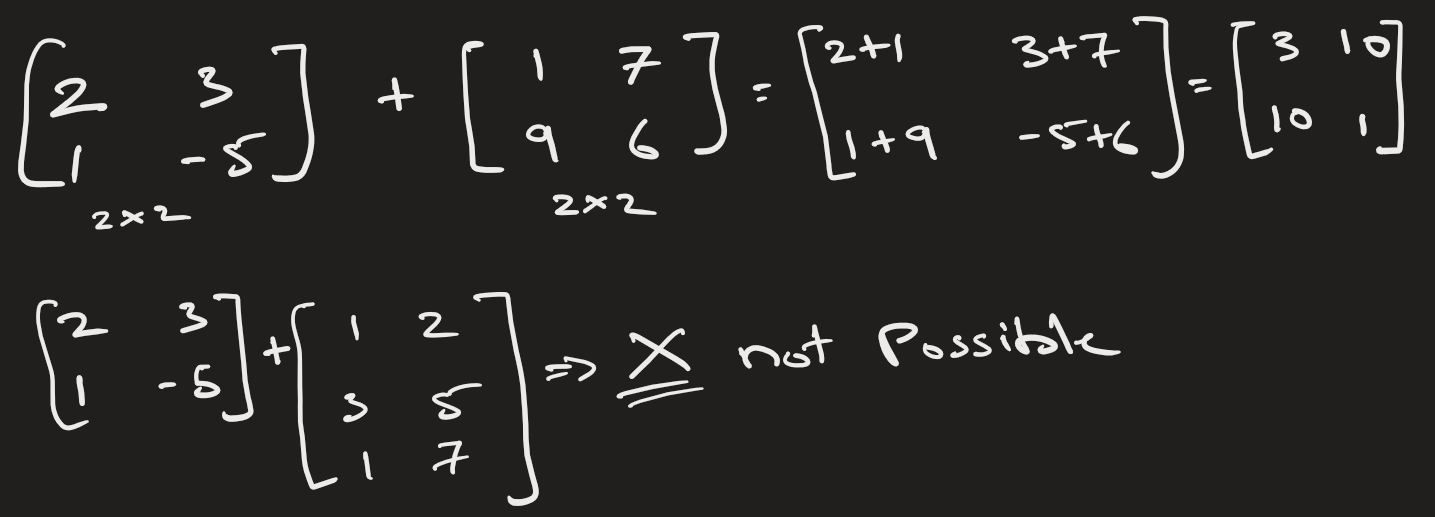 [2 3; 1 -5] + [1 7; 9 6] = [2+1 3+7; 1+9 -5+6] = [3 10; 10 1]
2×2 2×2
[2 3; 1 -5] + [1 2; 3 5; 1 7] ⇒ X not Possible